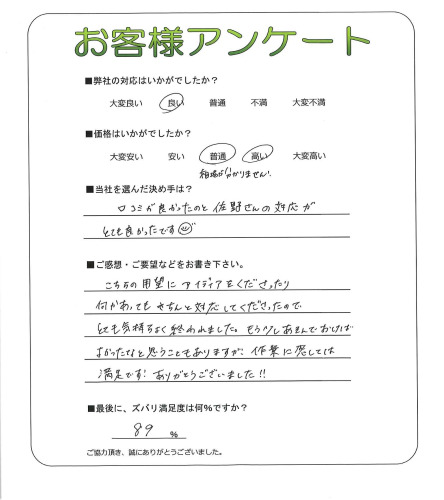 お客様アンケート
■弊社の対応はいかがでしたか?
大変良い 良い 普通 不満 大変不満
■価格はいかがでしたか?
大変安い 安い 普通 高い 大変高い
相場が分かりません.
■当社を選んだ決め手は?
口コミが良かったのと 佐野さんの対応が
とても良かったです
■ご感想・ご要望などをお書き下さい。
こちらの用望に アイディアをくださったり
何かあっても きちんと対応してくださったので
とても気持ちよく終われました。もう少しあそんでおけば
よかったなと思うこともありますが、作業に応しては
満足です! ありがとうございました!!
■最後に、ズバリ満足度は何%ですか?
89 %
ご協力頂き、誠にありがとうございました。